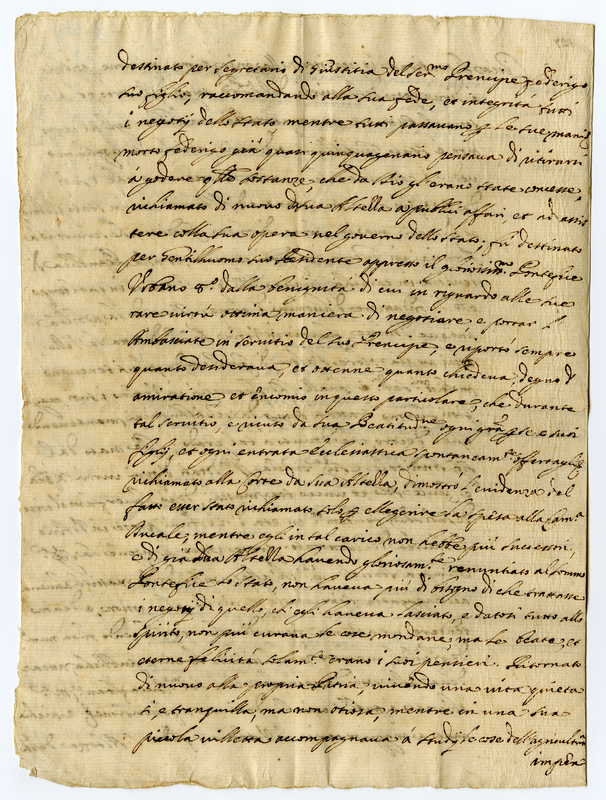 destinato per segretario di Giustitia del Ser.mo Prencipe Federigo
suo figlio, raccomandando alla sua fede, et integrità tutti
i negotij dello stato mentre tutti passavano p le sue mani
morto Federigo già quasi quinquagenario pensava di ritirarsi
à godere q.lle sostanze, che da Dio gl'erano state concesse,
richiamato di nuovo da sua Altezza à publici affari, et ad assis
tere colla sua opera nel governo dello stato; fù destinato
per Gentilhuomo suo Residente appresso il gloriosiss.mo Pontefice
Urbano 8.o dalla benignità di cui in riguardo alle sue
rare virtù ottima maniera di negotiare, e portar l'
Ambasciate in servitio del suo Prencipe, e riportò sempre
quanto desiderava, et ottenne quanto chiedeva, degno d'
amiratione, et encomio in questo particolare, che durante
tal servitio, e ricusò da sua Beatitud.ne ogni gra p se e suoi
figlij, et ogni entrata Ecclesiastica spontaneam.te offertagli
richiamato alla Corte da sua Altezza, dimostrò l'evidenza del
fatto esser stato richiamato solo p allegerire la spesa alla Cam.a
Ducale, mentre egli in tal carico non hebbe più successori,
e di già sua Altezza havendo gloriosam.te renuntiato al sommo
Pontefice lo stato, non haveva più di bisogno di che trattasse
i negotij di quello, ch'egli haveva lasciato, e datosi tutto allo
spirito, non più curava le cose mondane, ma le beate, et
eterne felicità solam.e erano i suoi pensieri. Ritornato
di nuovo alla propria Patria, vivendo una vita quieta
sì, e tranquilla, ma non otiosa, mentre in una sua
piccola villetta accompagnava à studij le cose dell'agricultura